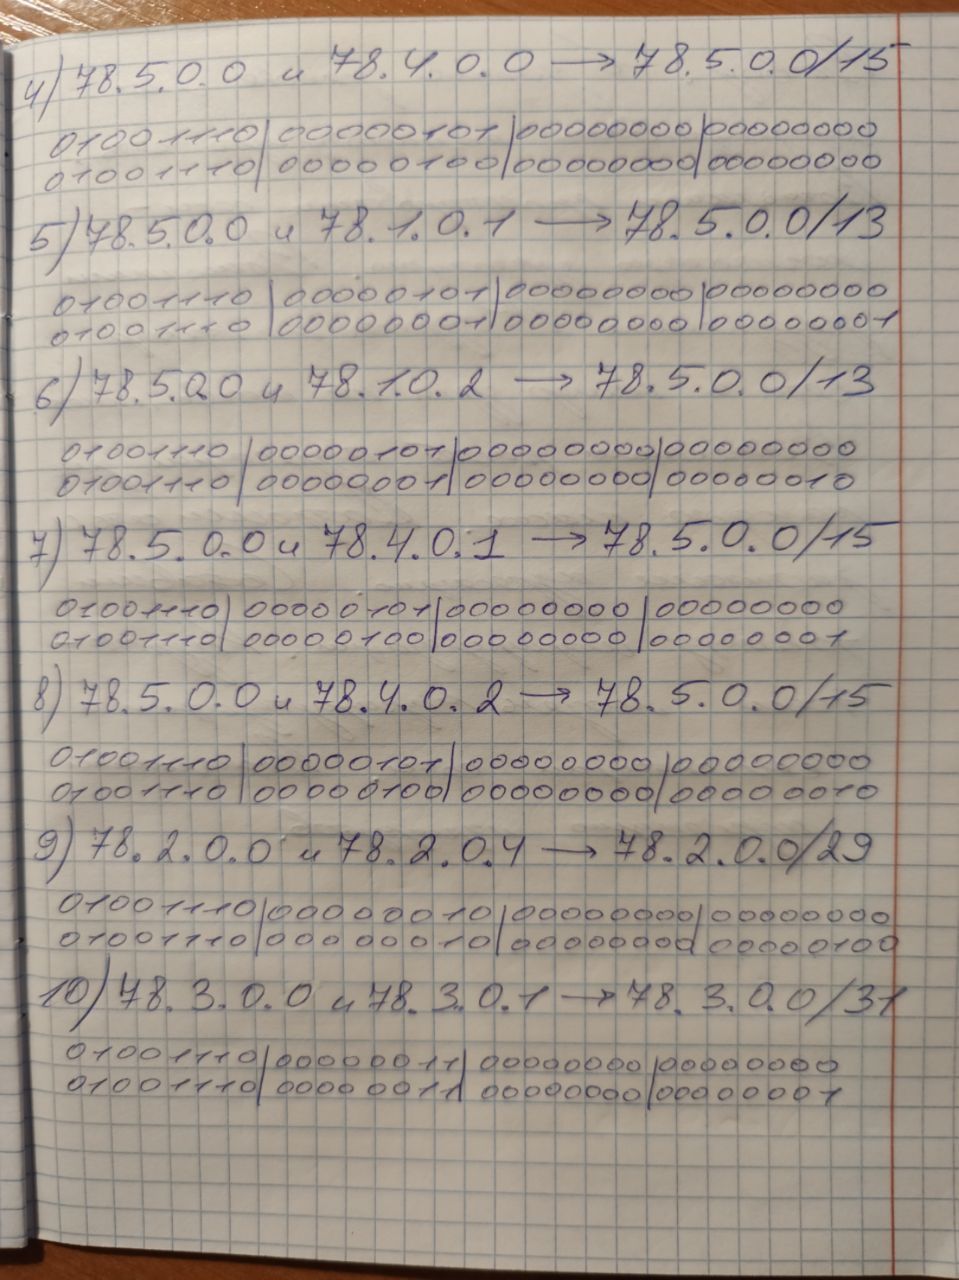 4) 78.5.0.0 и 78.4.0.0 → 78.5.0.0/15
01001110|00000101|00000000|00000000
01001110|00000100|00000000|00000000
5) 78.5.0.0 и 78.1.0.1 → 78.5.0.0/13
01001110|00000101|00000000|00000000
01001110|00000001|00000000|00000001
6) 78.5.0.0 и 78.1.0.2 → 78.5.0.0/13
01001110|00000101|00000000|00000000
01001110|00000001|00000000|00000010
7) 78.5.0.0 и 78.4.0.1 → 78.5.0.0/15
01001110|00000101|00000000|00000000
01001110|00000100|00000000|00000001
8) 78.5.0.0 и 78.4.0.2 → 78.5.0.0/15
01001110|00000101|00000000|00000000
01001110|00000100|00000000|00000010
9) 78.2.0.0 и 78.2.0.4 → 78.2.0.0/29
01001110|00000010|00000000|00000000
01001110|00000010|00000000|00000100
10) 78.3.0.0 и 78.3.0.1 → 78.3.0.0/31
01001110|00000011|00000000|00000000
01001110|00000011|00000000|00000001